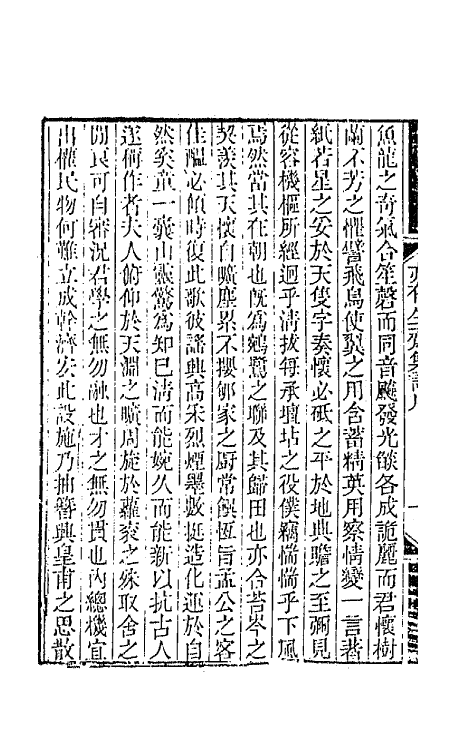 魚龍之奇氣合笙磬而同音飈發光燄各成詭麗而君懷樹
蘭不芳之懼譬飛鳥使翼之用含蓄精英用察情變一言著
紙若星之安於天隻字奏懷必砥之平於地典贍之至彌見
從容機樞所經迥乎清拔每承壇坫之役僕竊惴惴乎下風
焉然當其在朝也旣為鵷鷺之聯及其歸田也亦合苔岑之
契羨其天懷自曠塵累不攖郇家之厨常饌恆旨孟公之客
佳醞必傾時復此歌彼謠興高采烈煙墨數挺造化運於自
然奚童一囊山靈驚為知已淸而能婉久而能新以抗古人
遂稱作者夫人俯仰於天淵之曠周旋於蘿袞之殊取舍之
閒良可自審況君學之無勿融也才之無勿貫也內總機宜
出權民物何難立成幹濟宏此設施乃抽簪興皇甫之思散